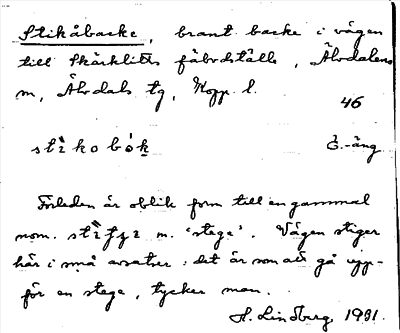 Stikåbacke, brant backe i vägen
till Skärklitts fäbodställe, Älvdalens
m, Älvdals tg, Kopp. l.
46
stìkobók̲ Ö.-äng
Förleden är oblik form till en gammal
nom. m. 'stege'. Vägen stiger
här i små avsatser: det är som att gå upp-
för en stege, tycker man.
H. Lindberg 1931.